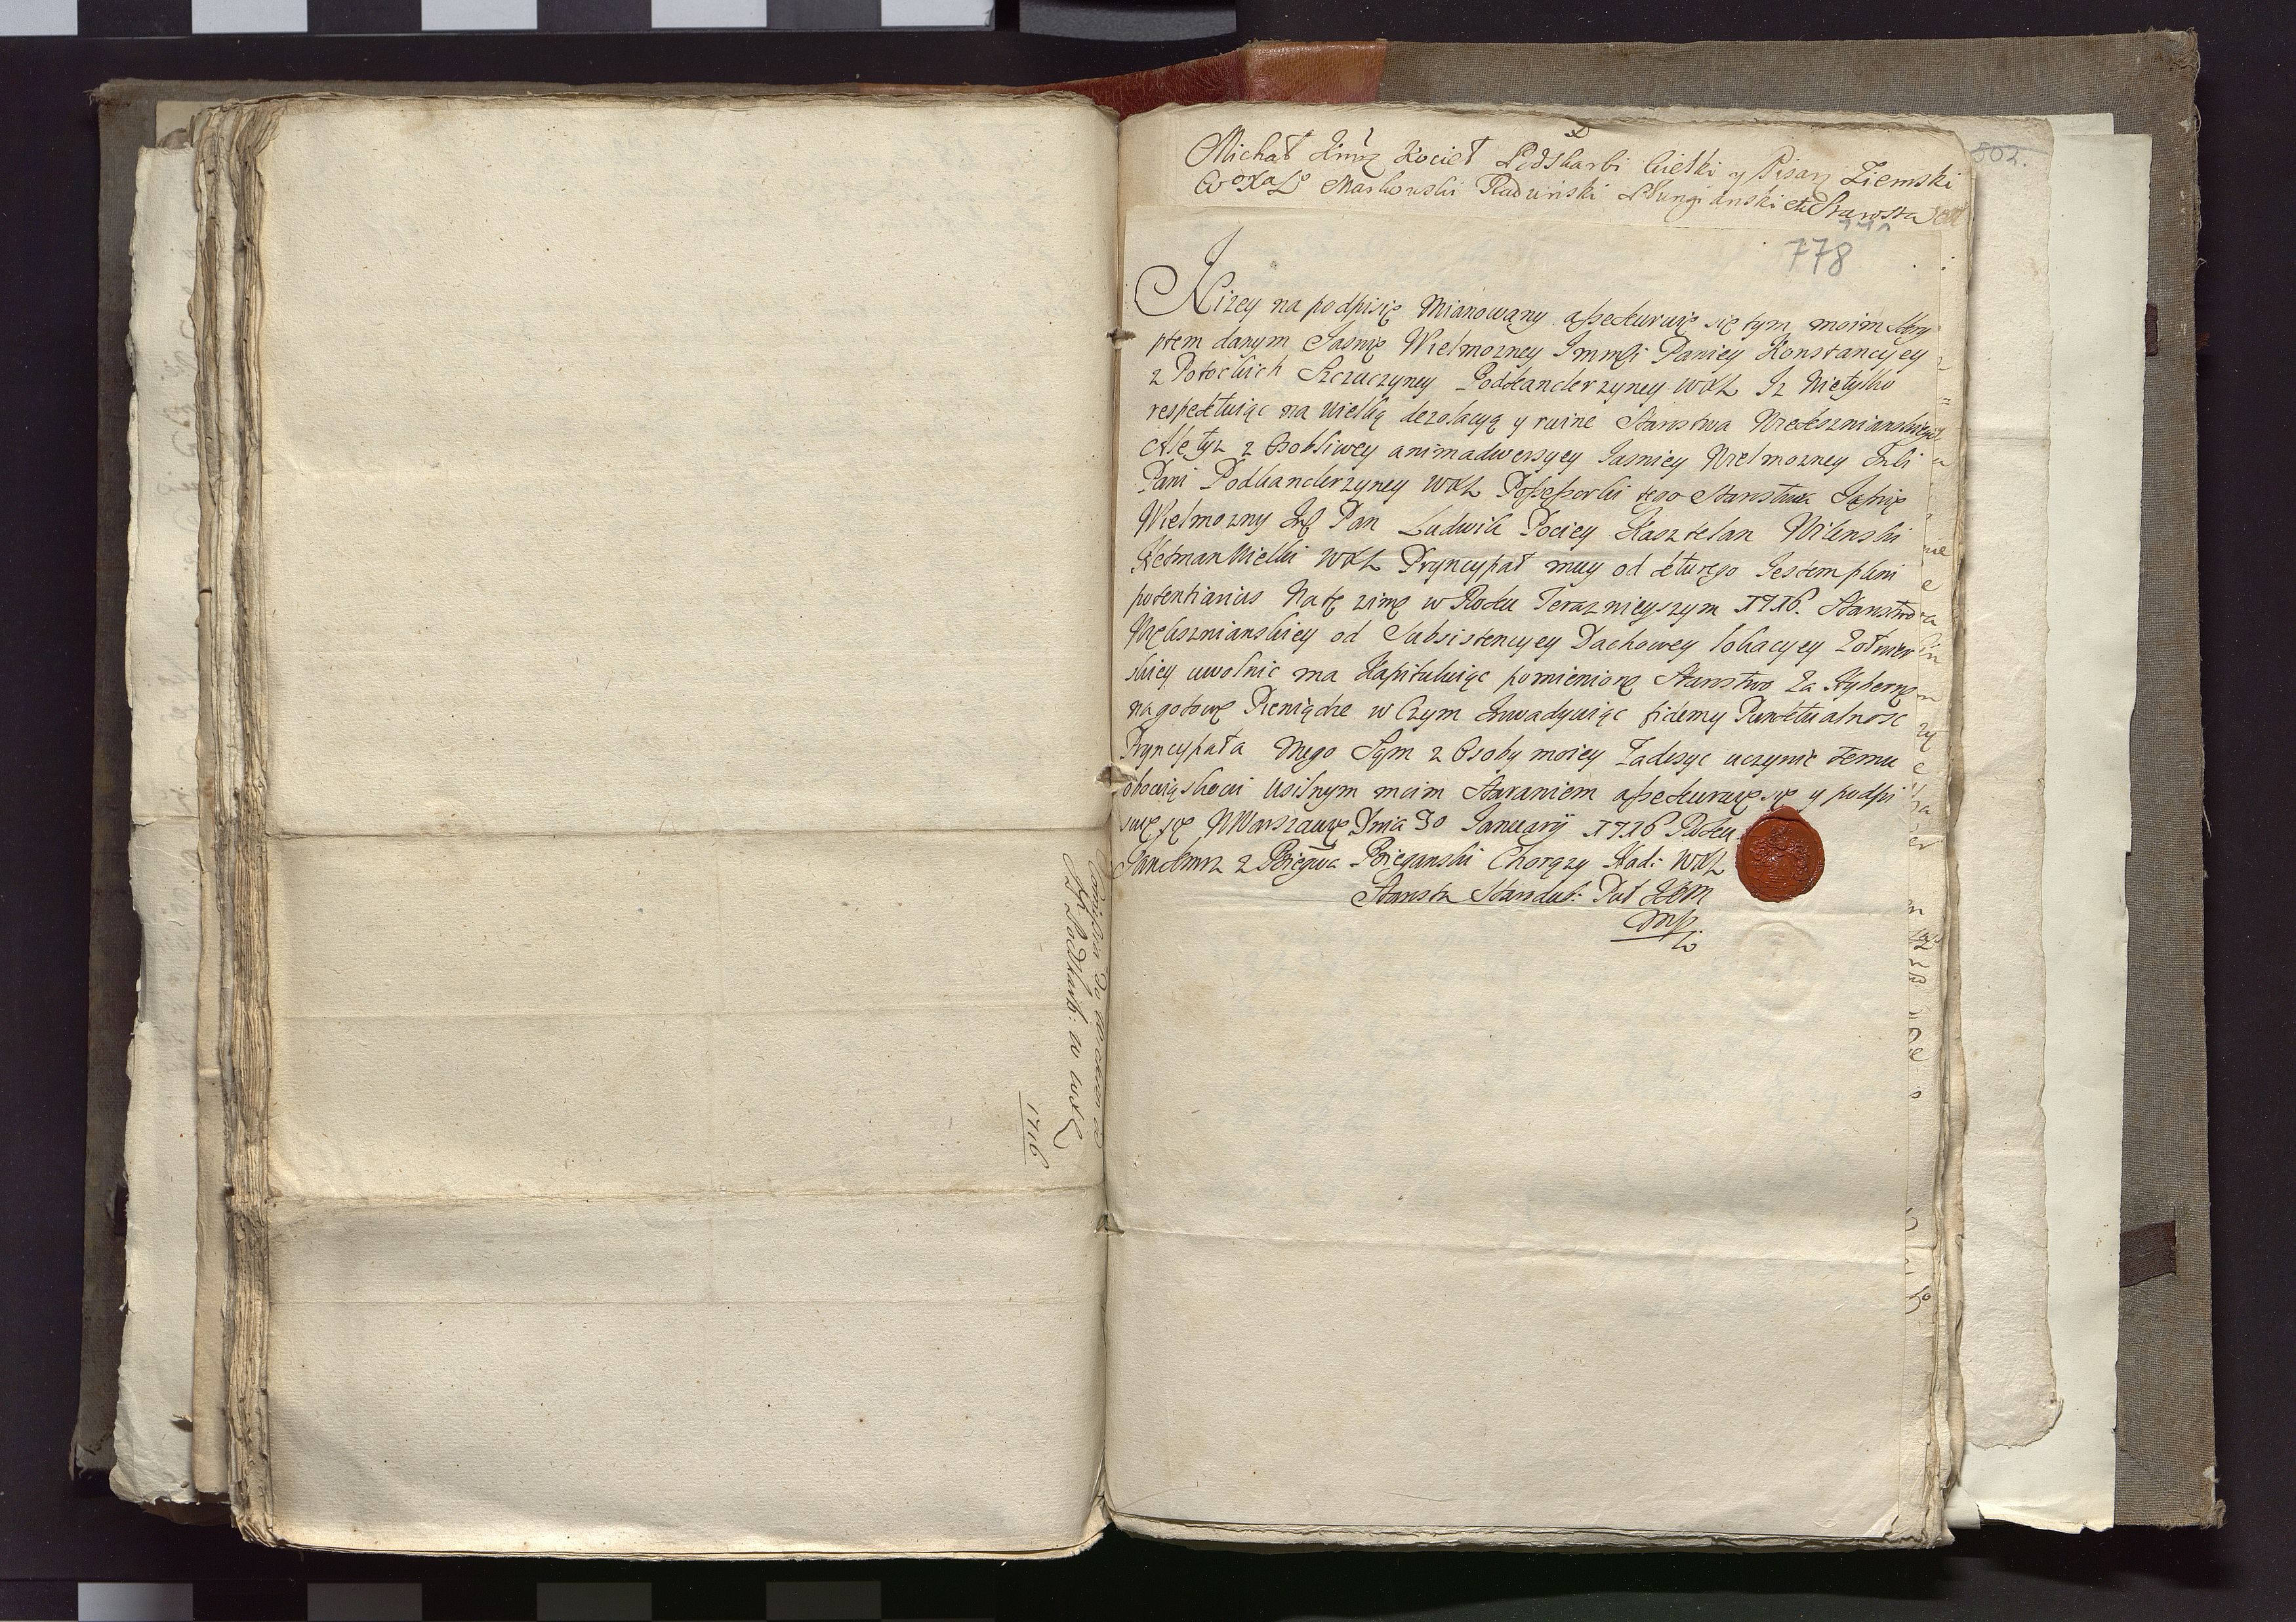 Michał Kocieł Podskarbi Wielki y Pisarz Ziemski
WoXaLo Markowski Raduński Płungianski etc Starosta
802.
778
Ja Niżey na podpisię Mianowany assekuruię się tym moim Skry
ptem danym Jasnię Wielmozney Immsci Paniey Konstancyey
z Potockich Szczuczyney Podkanclerzyney WXL Iz Nietylko
respektuiąc na wielką dezolacyą y ruinę Starostwa
Ale tyz z Osobliwey animadwersyey Jasniey Wielmozney Imści
Pani Podkanclerzyney WXL Possessorki tego Starostwa Jaśnie
Wielmozny Imść Pan Ludwik Pociey Kasztelan Wilenski
Hetman Wielki WXL Pryncypał muy od kturego Jestem pleni
potentiarius Na tę zimę w Roku Teraznieyszym 1716. Starostwo
od Subsistencyey Dachowey lokacyey Zołnier
skiey uwolnic ma Kapituluiąc pomienionę Starostwo Za Hybernę
na gotowe Pieniądze w Czym Inwadyuiąc fidem y Punktualnosc
Pryncypała Mego Sąm z Osoby moiey Zadosyc uczynic temu
obowiąskowi usilnym moim Staraniem assekuruię się y podpi
suię się W Warszawie Dnia 30 Januarij 1716 Roku
z Chorąży Nad: WXL
Starosta Starodub: Puł JKM
mp
JP Podskarb: w WXL
1716